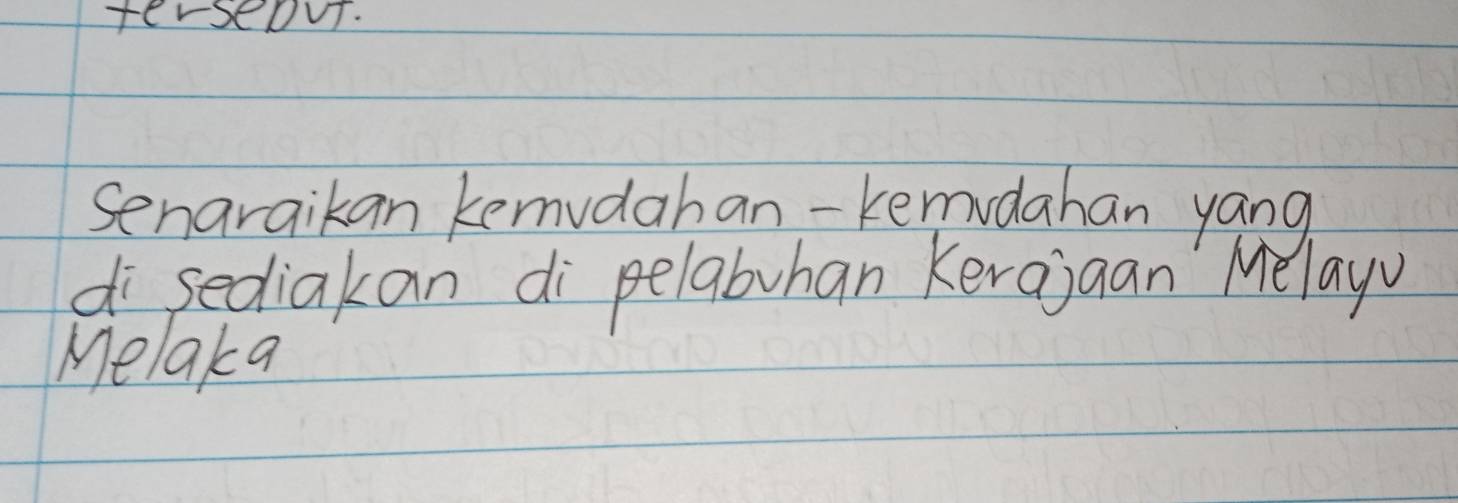 tersebut.
Senaraikan kemudahan - kemudahan yang
di sediakan di pelabuhan Kerajaan Melayu
Melaka